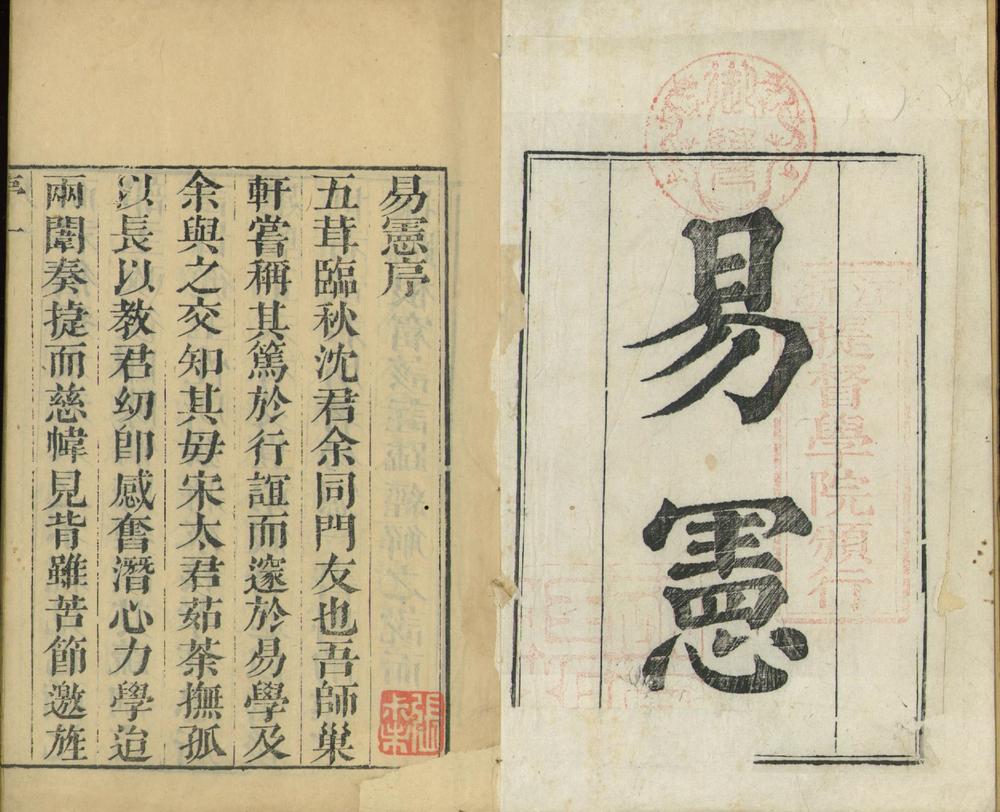 易憲
御覽
提督學院頒行
易憲序
五茸臨秋沈君余同門友也吾師巢
軒嘗稱其篤於行誼而邃於易學及
余與之交知其毋宋太君茹荼撫孤
以長以教君幼卽感奮潛心力學迨
兩闈奏捷而慈幃見背雖苦節邀旌
序 一